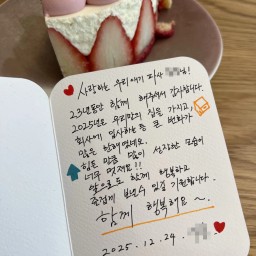 사랑하는 우리 애기 파샤
23년동안 함께 해주셔서 감사합니다.
2025년은 우리만의 집을 가지고,
회사에 입사하는 등 큰 변화가
많은 한해였네요.
힘든 만큼 많이 성장한 모습이
너무 멋져요!!
앞으로도 함께 행복하고
즐겁게 보낼수 있길 기원합니다.
함께 행복해요~
2025. 12. 24.